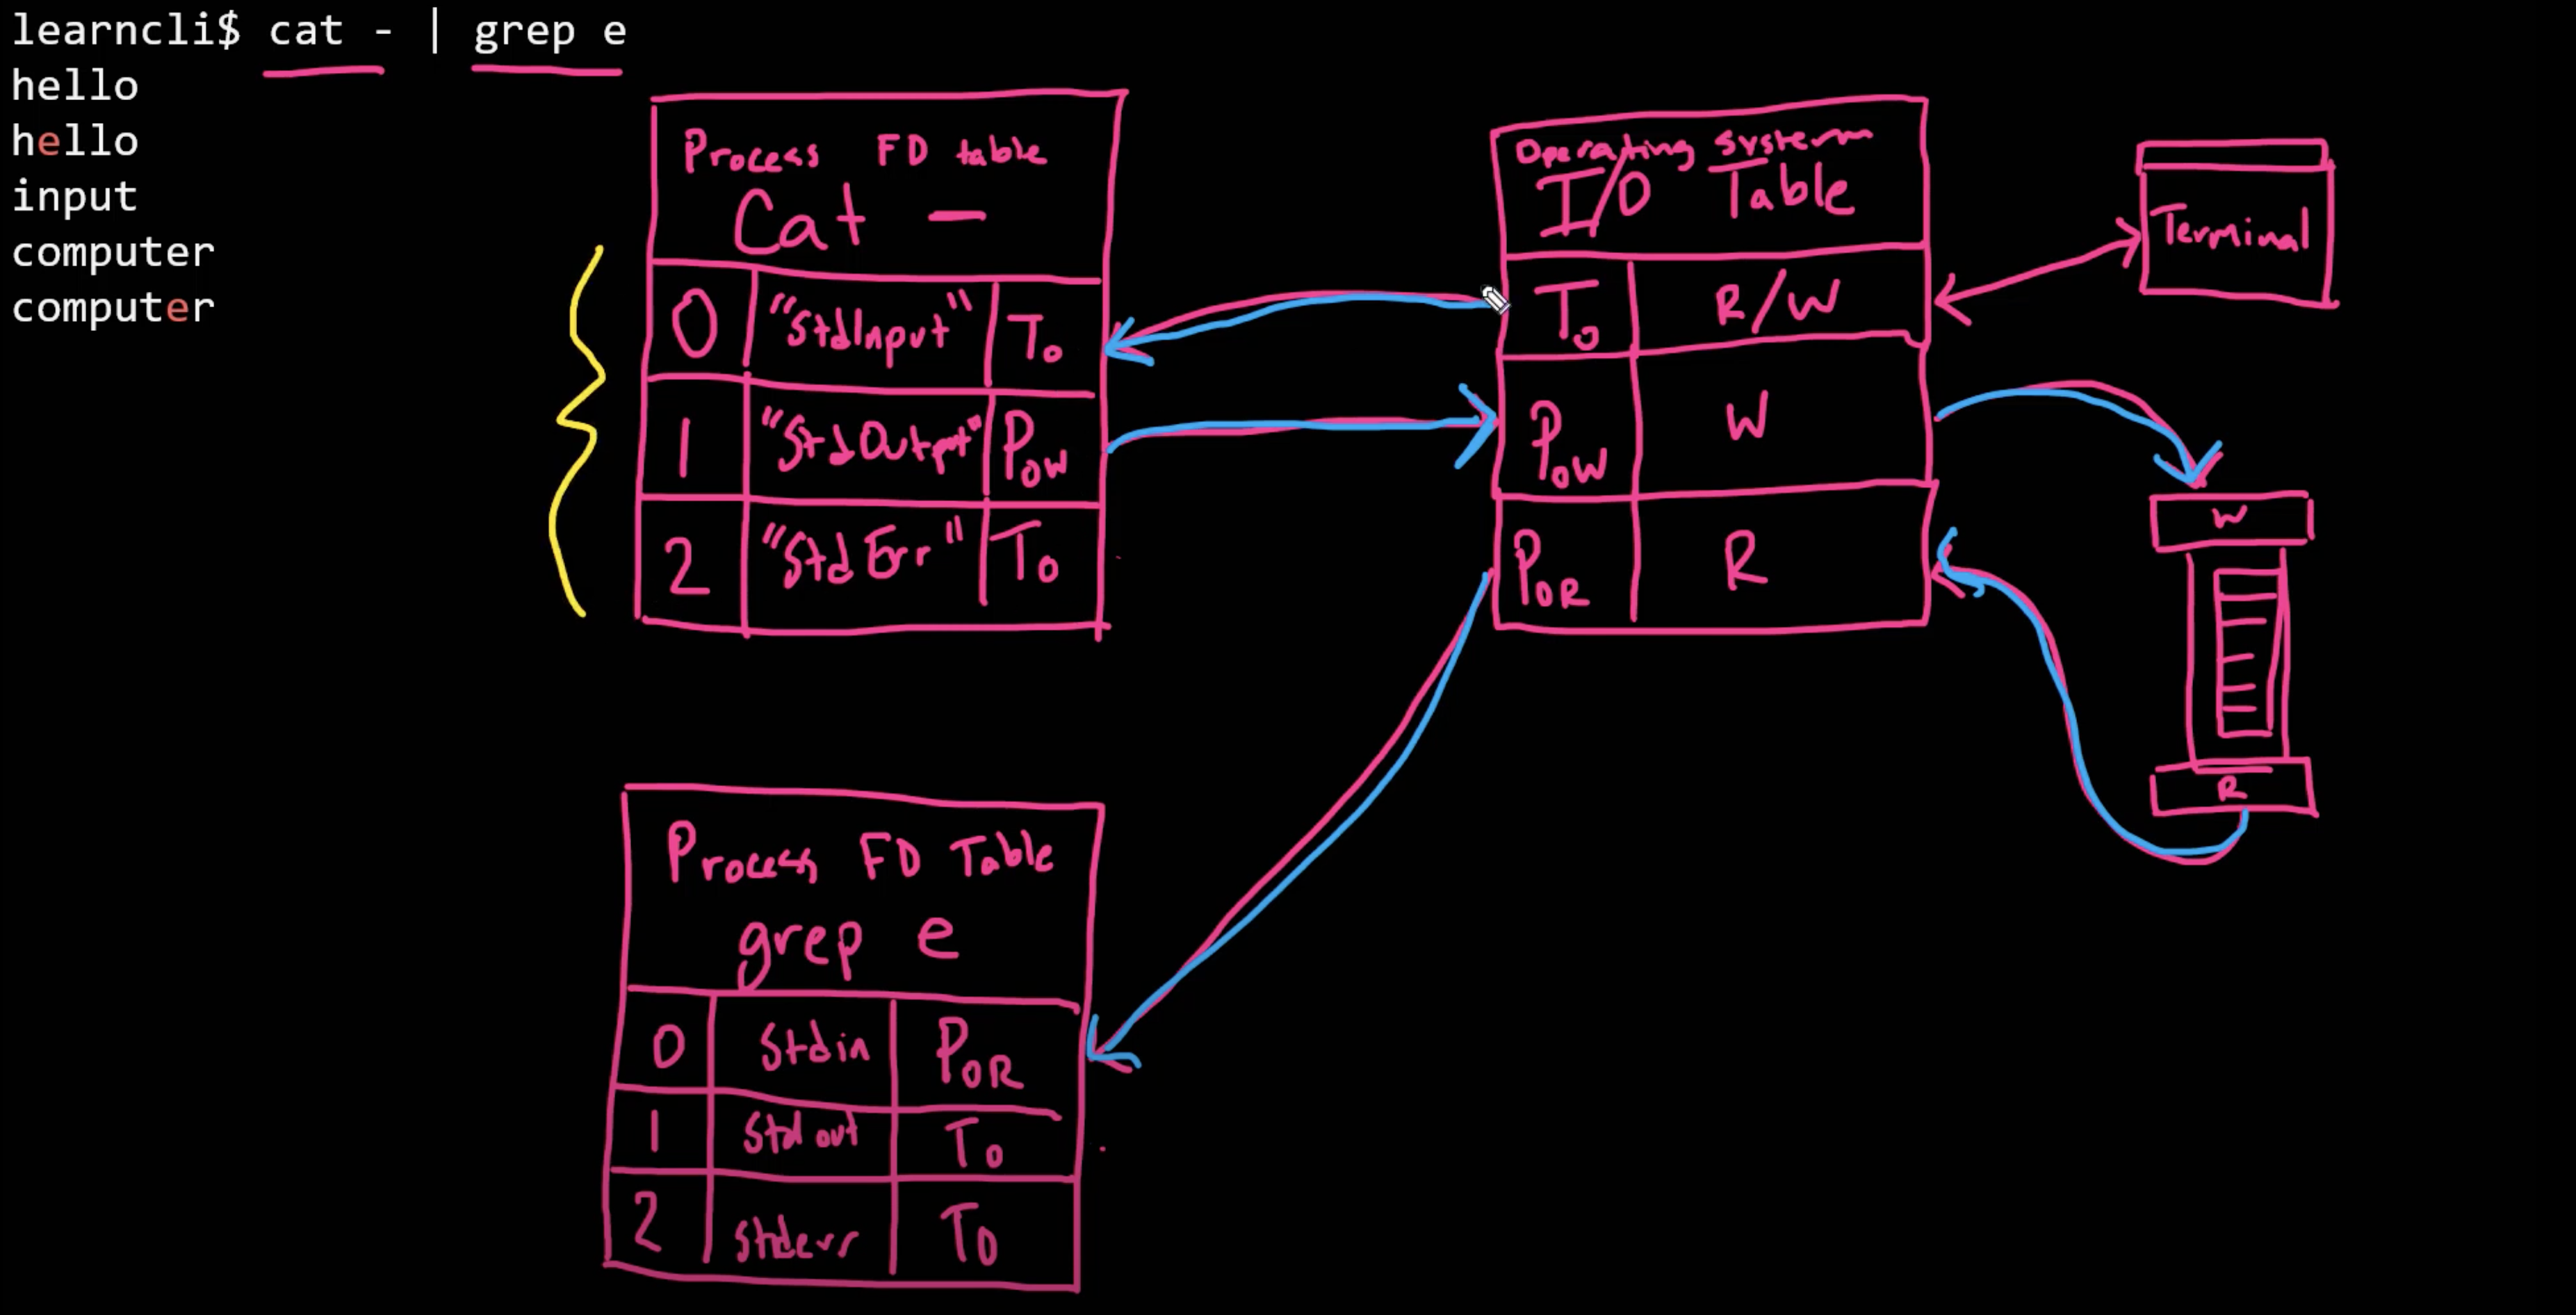 learncli$ cat - | grep e
hello
hello
input
computer
computer
Process FD table
Cat -
0 "StdInput" T0
1 "StdOutput" P0W
2 "StdErr" T0
Operating system
I/O Table
T0 R/W
P0W W
P0R R
Terminal
W
R
Process FD Table
grep e
0 Stdin P0R
1 Stdout T0
2 Stderr T0